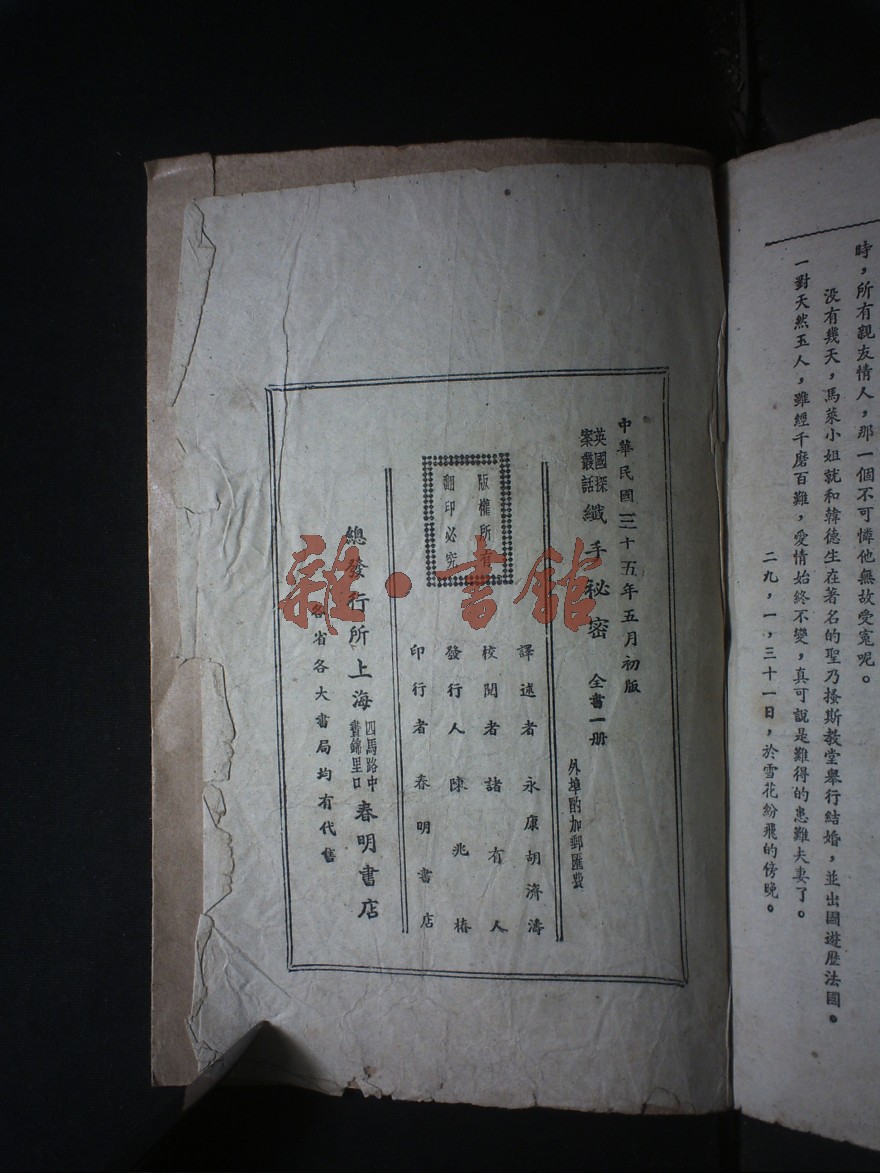 時，所有親友情人，那一個不可憐他無故受冤呢。
沒有幾天，馬萊小姐就和韓德生在著名的聖乃搔斯教堂舉行結婚，並出國遊歷法國。
一對天然玉人，雖經千磨百難，愛情始終不變，真可說是難得的患難夫妻了。
二九，一，三十一日，於雪花紛飛的傍晚。
中華民國三十五年五月初版
英國探案叢話 纖手祕密 全書一册
外埠酌加郵匯費
譯述者 永康胡濟濤
校閱者 諸有人
發行人 陳兆椿
印行者 春明書店
版權所有
翻印必究
總發行所 上海 四馬路中晝錦里口 春明書店
各省各大書局均有代售
雜·書館